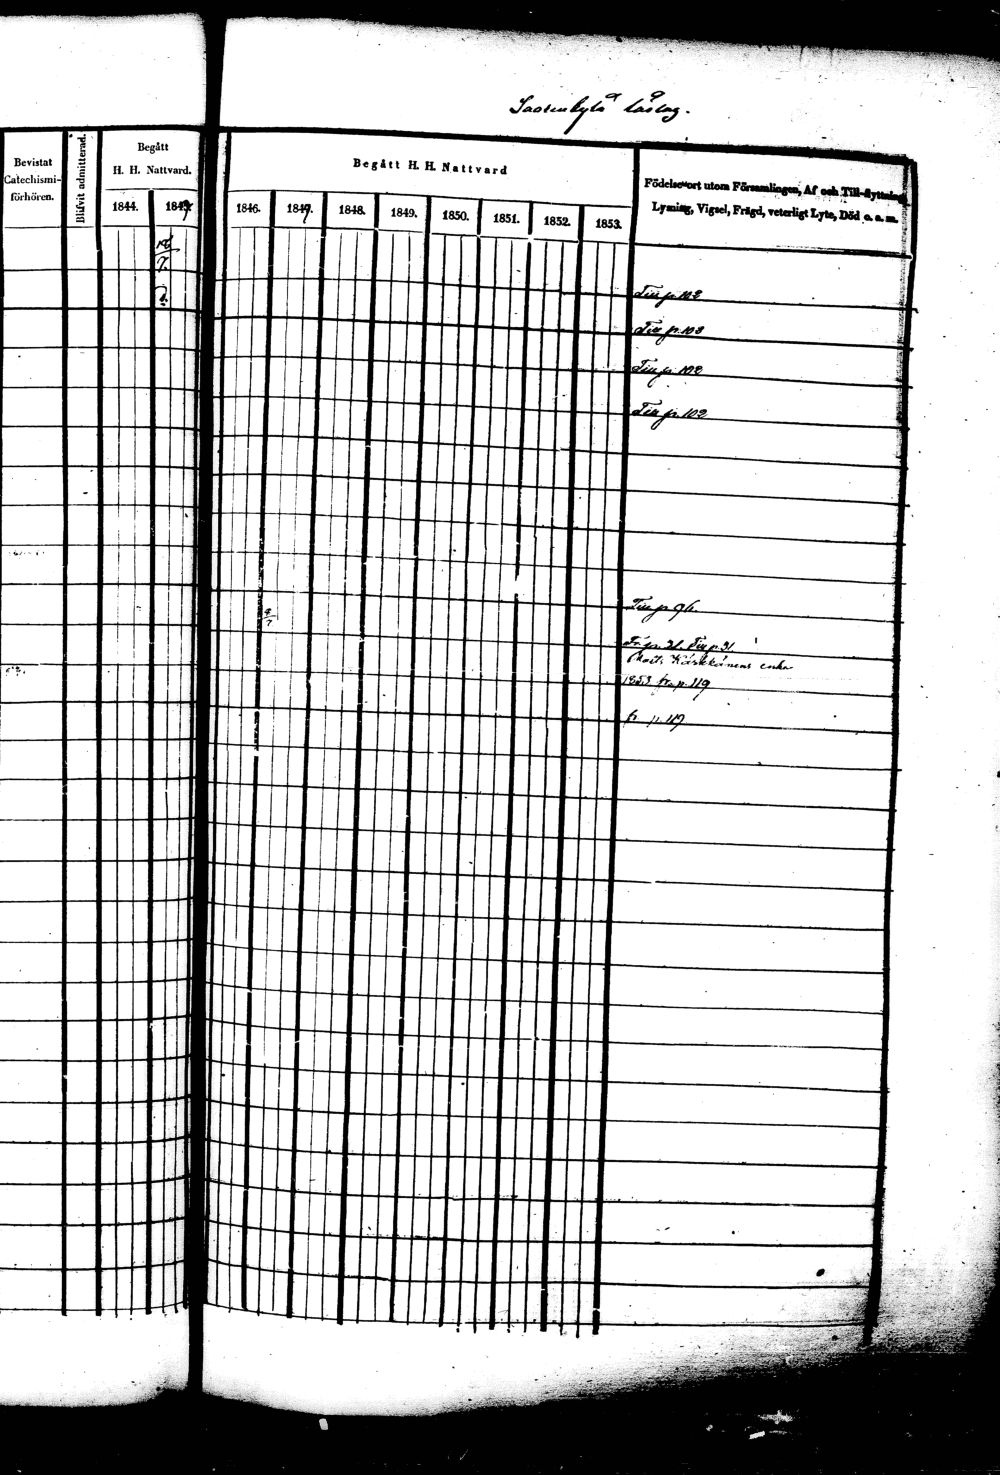 Saarenkylä låslag.
Bevistat
Catechismi-
förhören.
Blifvit admitterad.
Begått
H. H. Nattvard.
1844.
184
Begått H. H. Nattvard
1846. 1847. 1848. 1849. 1850. 1851. 1852. 1853.
Födelse-ort utom Församlingen, Af och Till-flyttning,
Lysning, Vigsel, Frägd, veterligt Lyte, Död o. s. m.
Till p. 102
Till p. 103
Till p. 102
Till p. 102
Till p. 96
9/7
Fr. p. 21. Till p. 31
Matts Kärkkänens enka
1853 fr. p. 119
fr. p. 119